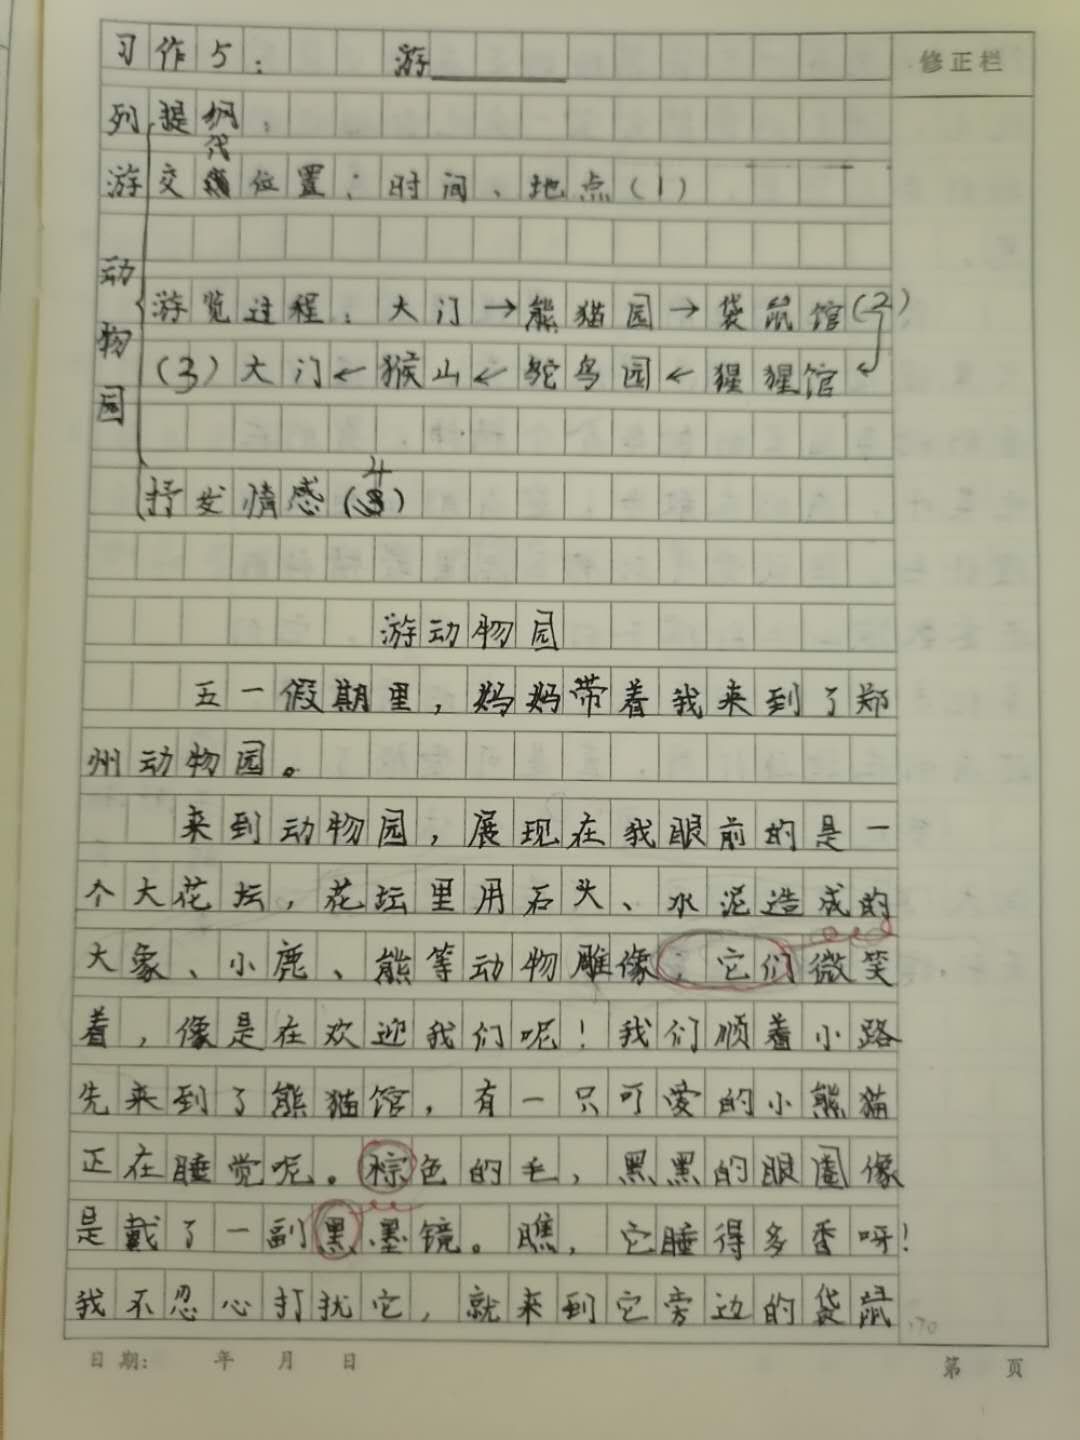 习作5： 游
修正栏
列提纲：
代
游交位置：时间、地点（1）
动
游览过程：大门→熊猫园→袋鼠馆（2）
物
（3）大门←猴山←鸵鸟园←猩猩馆
园
4
抒发情感（3）
游动物园
五一假期里，妈妈带着我来到了郑
州动物园。
来到动物园，展现在我眼前的是一
个大花坛，花坛里用石头、水泥造成的
大象、小鹿、熊等动物雕像；它们微笑
着，像是在欢迎我们呢！我们顺着小路
先来到了熊猫馆，有一只可爱的小熊猫
正在睡觉呢。棕色的毛，黑黑的眼圈像
是戴了一副黑墨镜。瞧，它睡得多香呀！
我不忍心打扰它，就来到它旁边的袋鼠
日期： 年 月 日
第 页